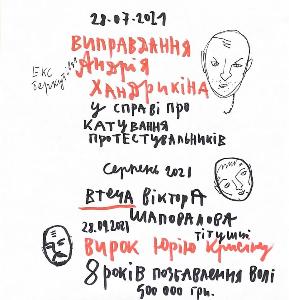 28.07.2021
ВИПРАВДАННЯ
АНДРІЯ
ХАНДРИКІНА
ЕКС
"беркут"
У СПРАВІ ПРО
КАТУВАННЯ
ПРОТЕСТУВАЛЬНИКІВ
Серпень 2021
ВТЕЧА ВІКТОРА
ШАПОВАЛОВА
ТІТУШКИ
28.09.2021
ВИРОК Юрію Крисіну
8 РОКІВ ПОЗБАВЛЕННЯ ВОЛІ
500 000 грн.